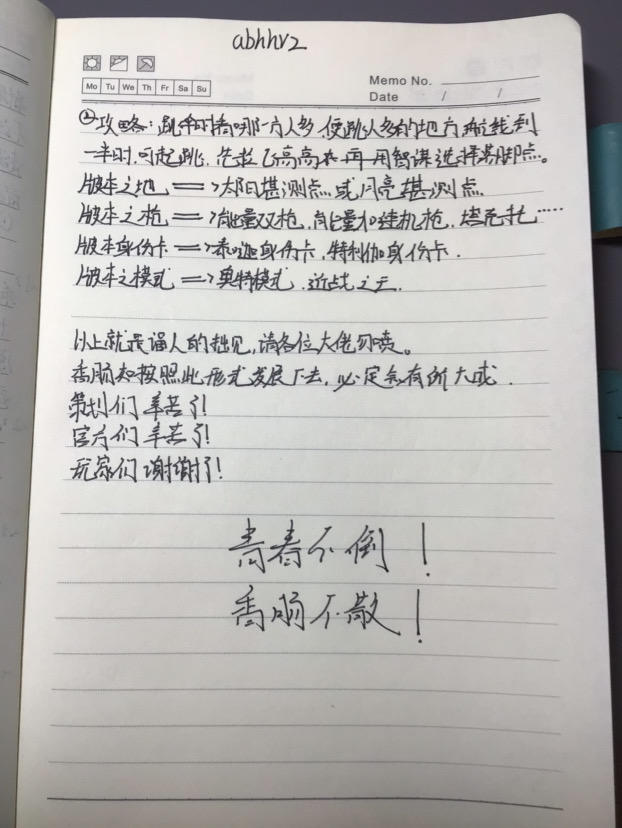 abhhv2
Memo No.
Mo Tu We Th Fr Sa Su
Date / /
②攻略:跳伞时看哪一方人多,便跳人多的地方,航线到
一半时,可起跳,先拉飞高高,再用智谋选择落脚点。
版本之地==>太阳堪测点或月亮堪测点
版本之枪==>能量双枪,能量加速机枪,填充托……
版本身份卡==>泰迦身份卡,特利伽身份卡.
版本之模式==>奥特模式,近战之王.
以上就是逼人的拙见,请各位大佬勿喷。
香肠如按照此形式发展下去,必定会有所大成.
策划们辛苦了!
官方们辛苦了!
玩家们谢谢了!
青春不倒!
香肠不散!